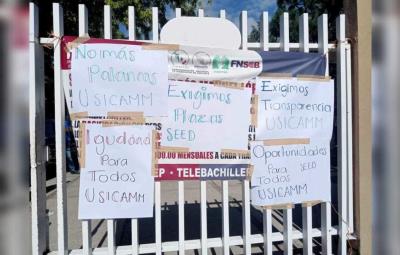 No más
Palancas
USICAMM
Igualdad
Para
Todos
USICAMM
FNSEB
Exigimos
Plazas
SEED
00.00 MENSUALES A CADA TRA
EP - TELEBACHILLER
Exigimos
Transparencia
USICAMM
Oportunidades
Para SEED
Todos
USICAMM